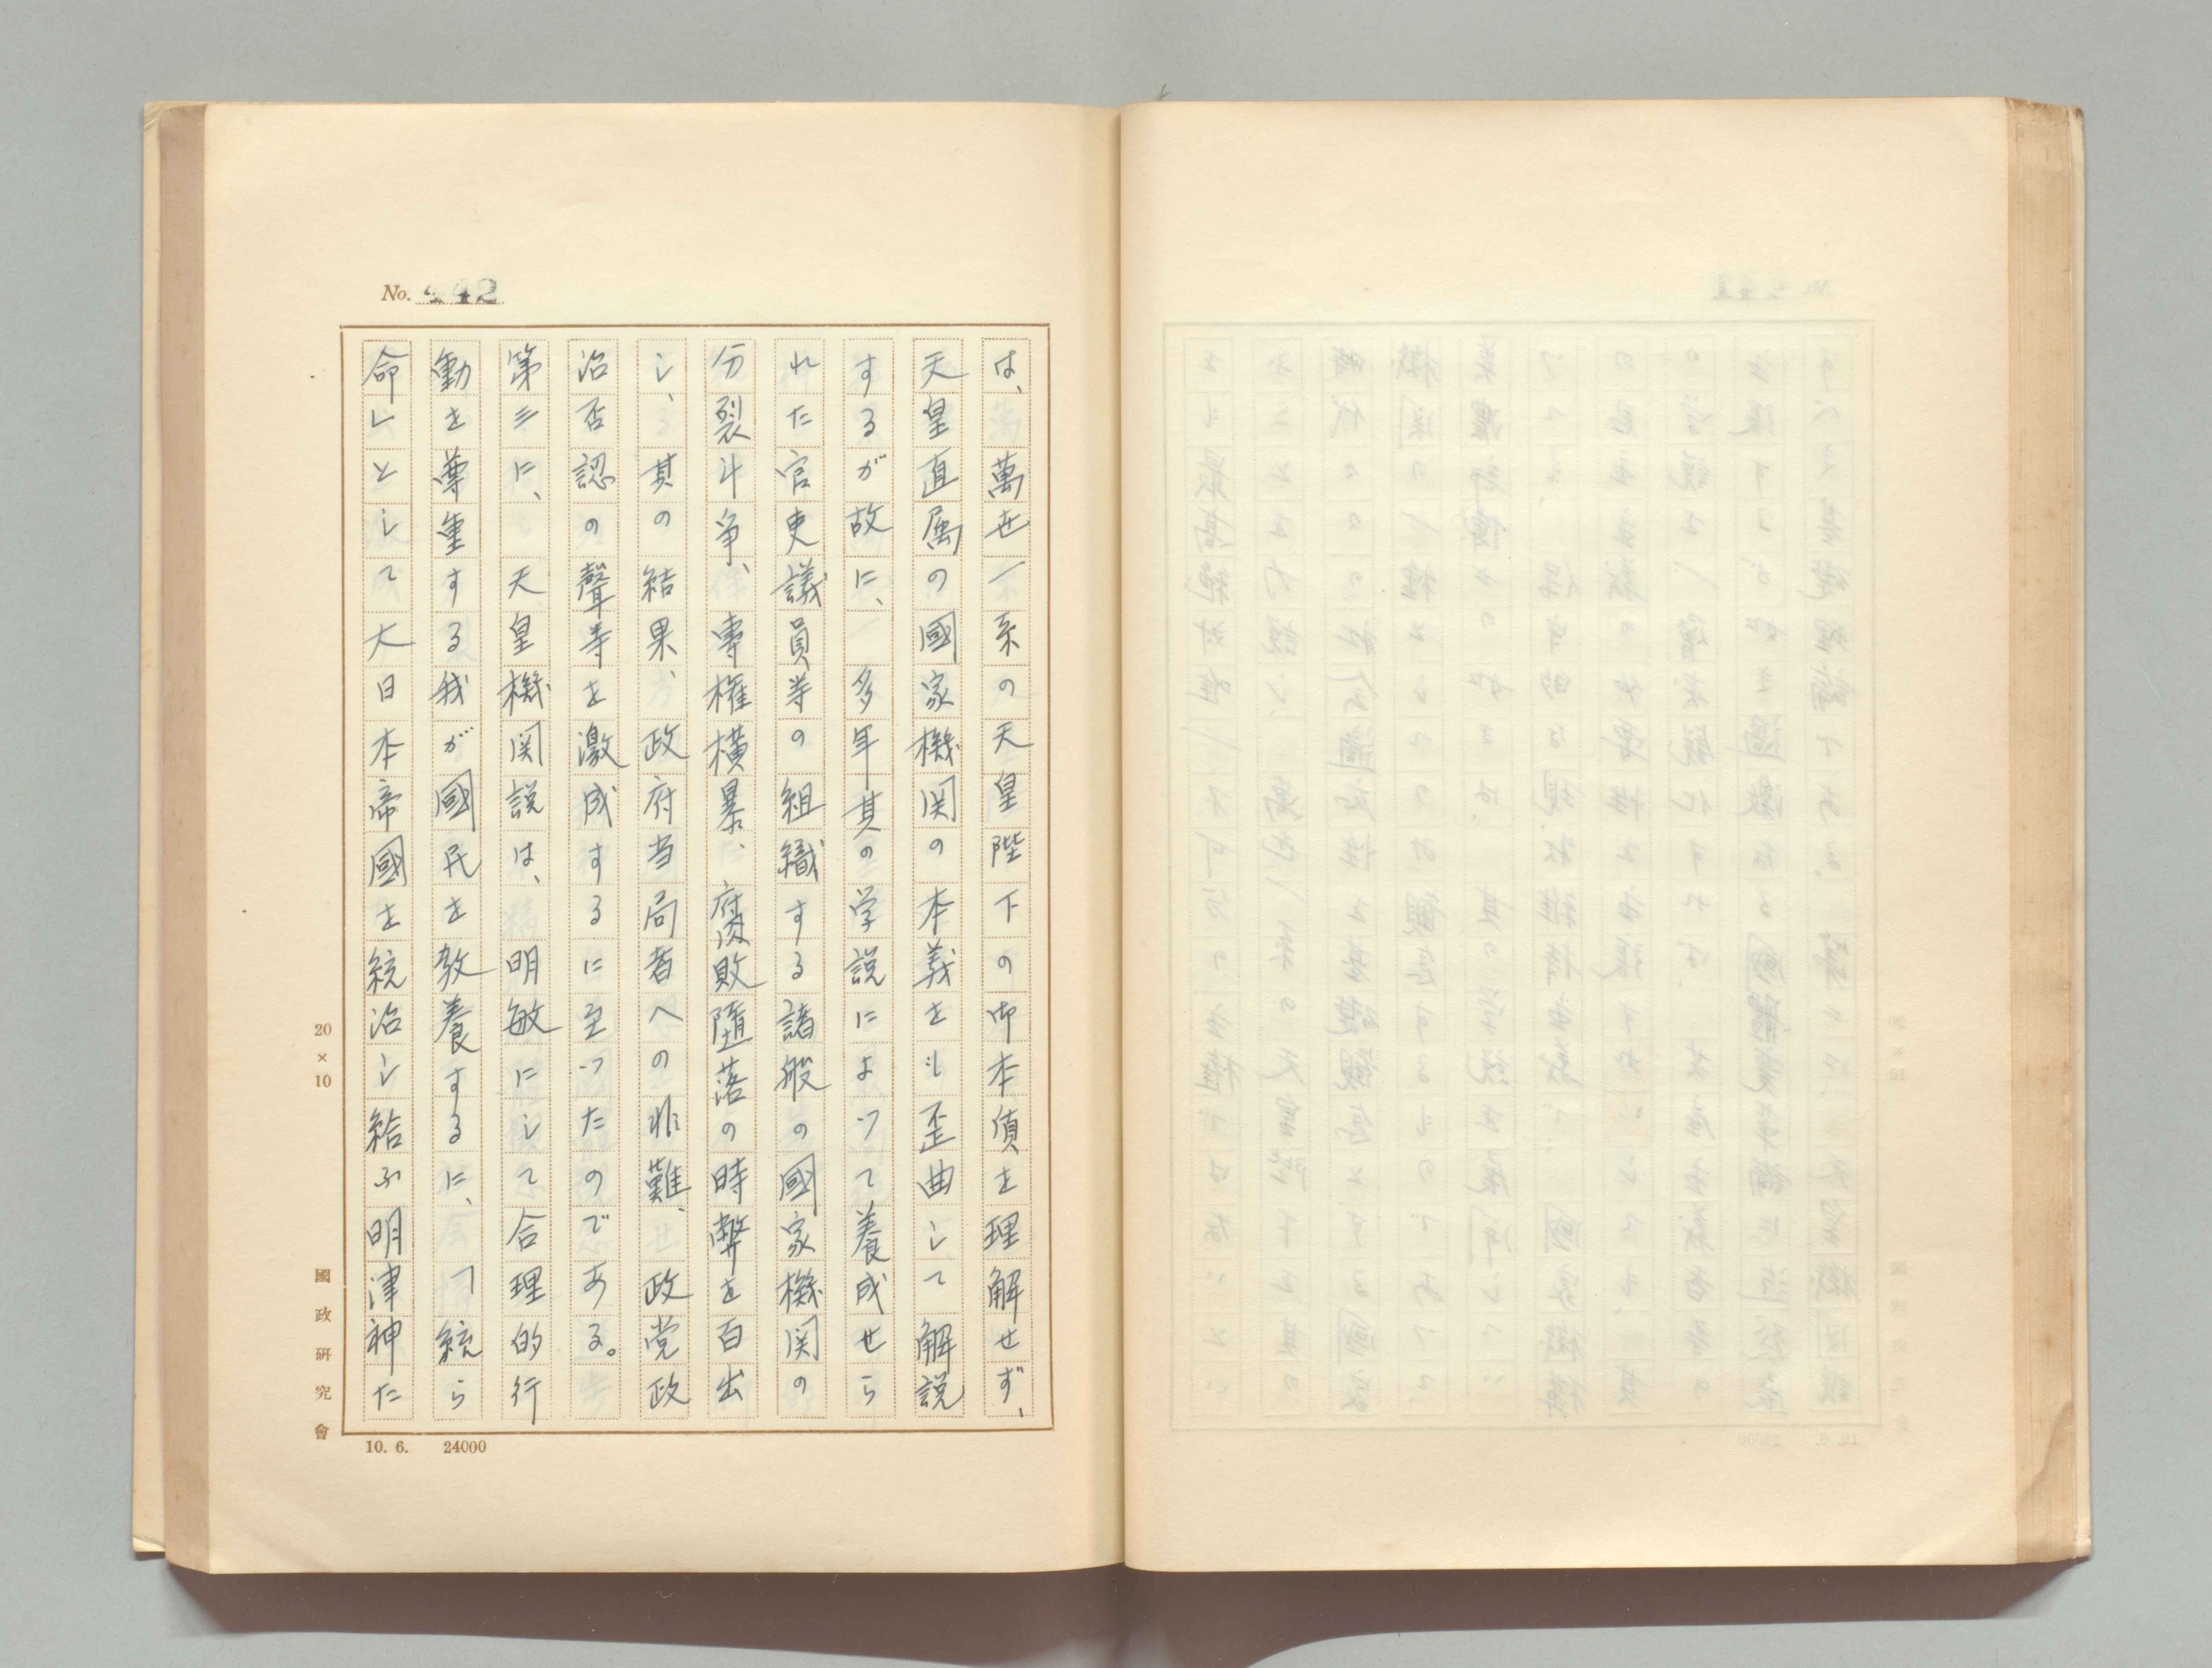 No. 442
は、萬世一系の天皇陛下の御本債を理解せず、
天皇直属の國家機関の本義をも歪曲して解説
するが故に、多年其の学説によつて養成せら
れた官吏議員等の組織する諸般の國家機関の
分裂斗争、專権横暴、腐敗墮落の時弊を百出
し、其の結果、政府当局者への非難、政党政
治否認の聲等を激成するに至つたのである。
第三に、天皇機関説は、明敏にして合理的行
動を尊重する我が國民を教養するに、「統ら
命しとして大日本帝國を統治し給ふ明津神た
20×10
國政研究會
10. 6. 24000